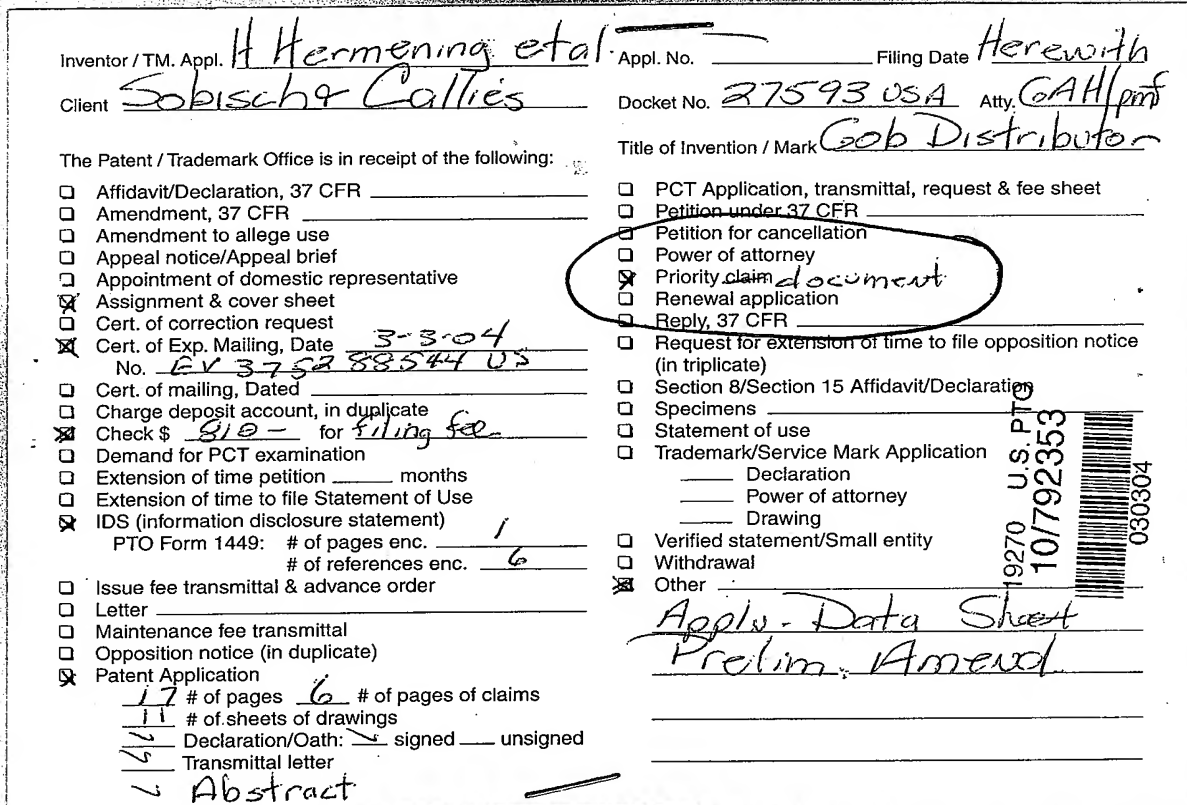 Inventor / TM. Appl. H Hermening etal.
Client Sobisch & Callies
The Patent / Trademark Office is in receipt of the following:
Affidavit/Declaration, 37 CFR
Amendment, 37 CFR
Amendment to allege use
Appeal notice/Appeal brief
Appointment of domestic representative
Assignment & cover sheet
Cert. of correction request
Cert. of Exp. Mailing, Date 3-3-04
No. EV 375288544 US
Cert. of mailing, Dated
Charge deposit account, in duplicate
Check $ 810- for filing fee
Demand for PCT examination
Extension of time petition months
Extension of time to file Statement of Use
IDS (information disclosure statement)
PTO Form 1449: # of pages enc. 1
# of references enc. 6
Issue fee transmittal & advance order
Letter
Maintenance fee transmittal
Opposition notice (in duplicate)
Patent Application
17 # of pages 6 # of pages of claims
11 # of sheets of drawings
Declaration/Oath: signed unsigned
Transmittal letter
Abstract
Appl. No. Filing Date Herewith
Docket No. 27593 USA Atty. GAH/pmf
Title of Invention / Mark Gob Distributor
PCT Application, transmittal, request & fee sheet
Petition under 37 CFR
Petition for cancellation
Power of attorney
Priority claim document
Renewal application
Reply, 37 CFR
Request for extension of time to file opposition notice
(in triplicate)
Section 8/Section 15 Affidavit/Declaration
Specimens
Statement of use
Trademark/Service Mark Application
Declaration
Power of attorney
Drawing
Verified statement/Small entity
Withdrawal
Other
Appln. Data Sheet
Prelim. Amend
19270 U.S. PTO
10/792353
030304